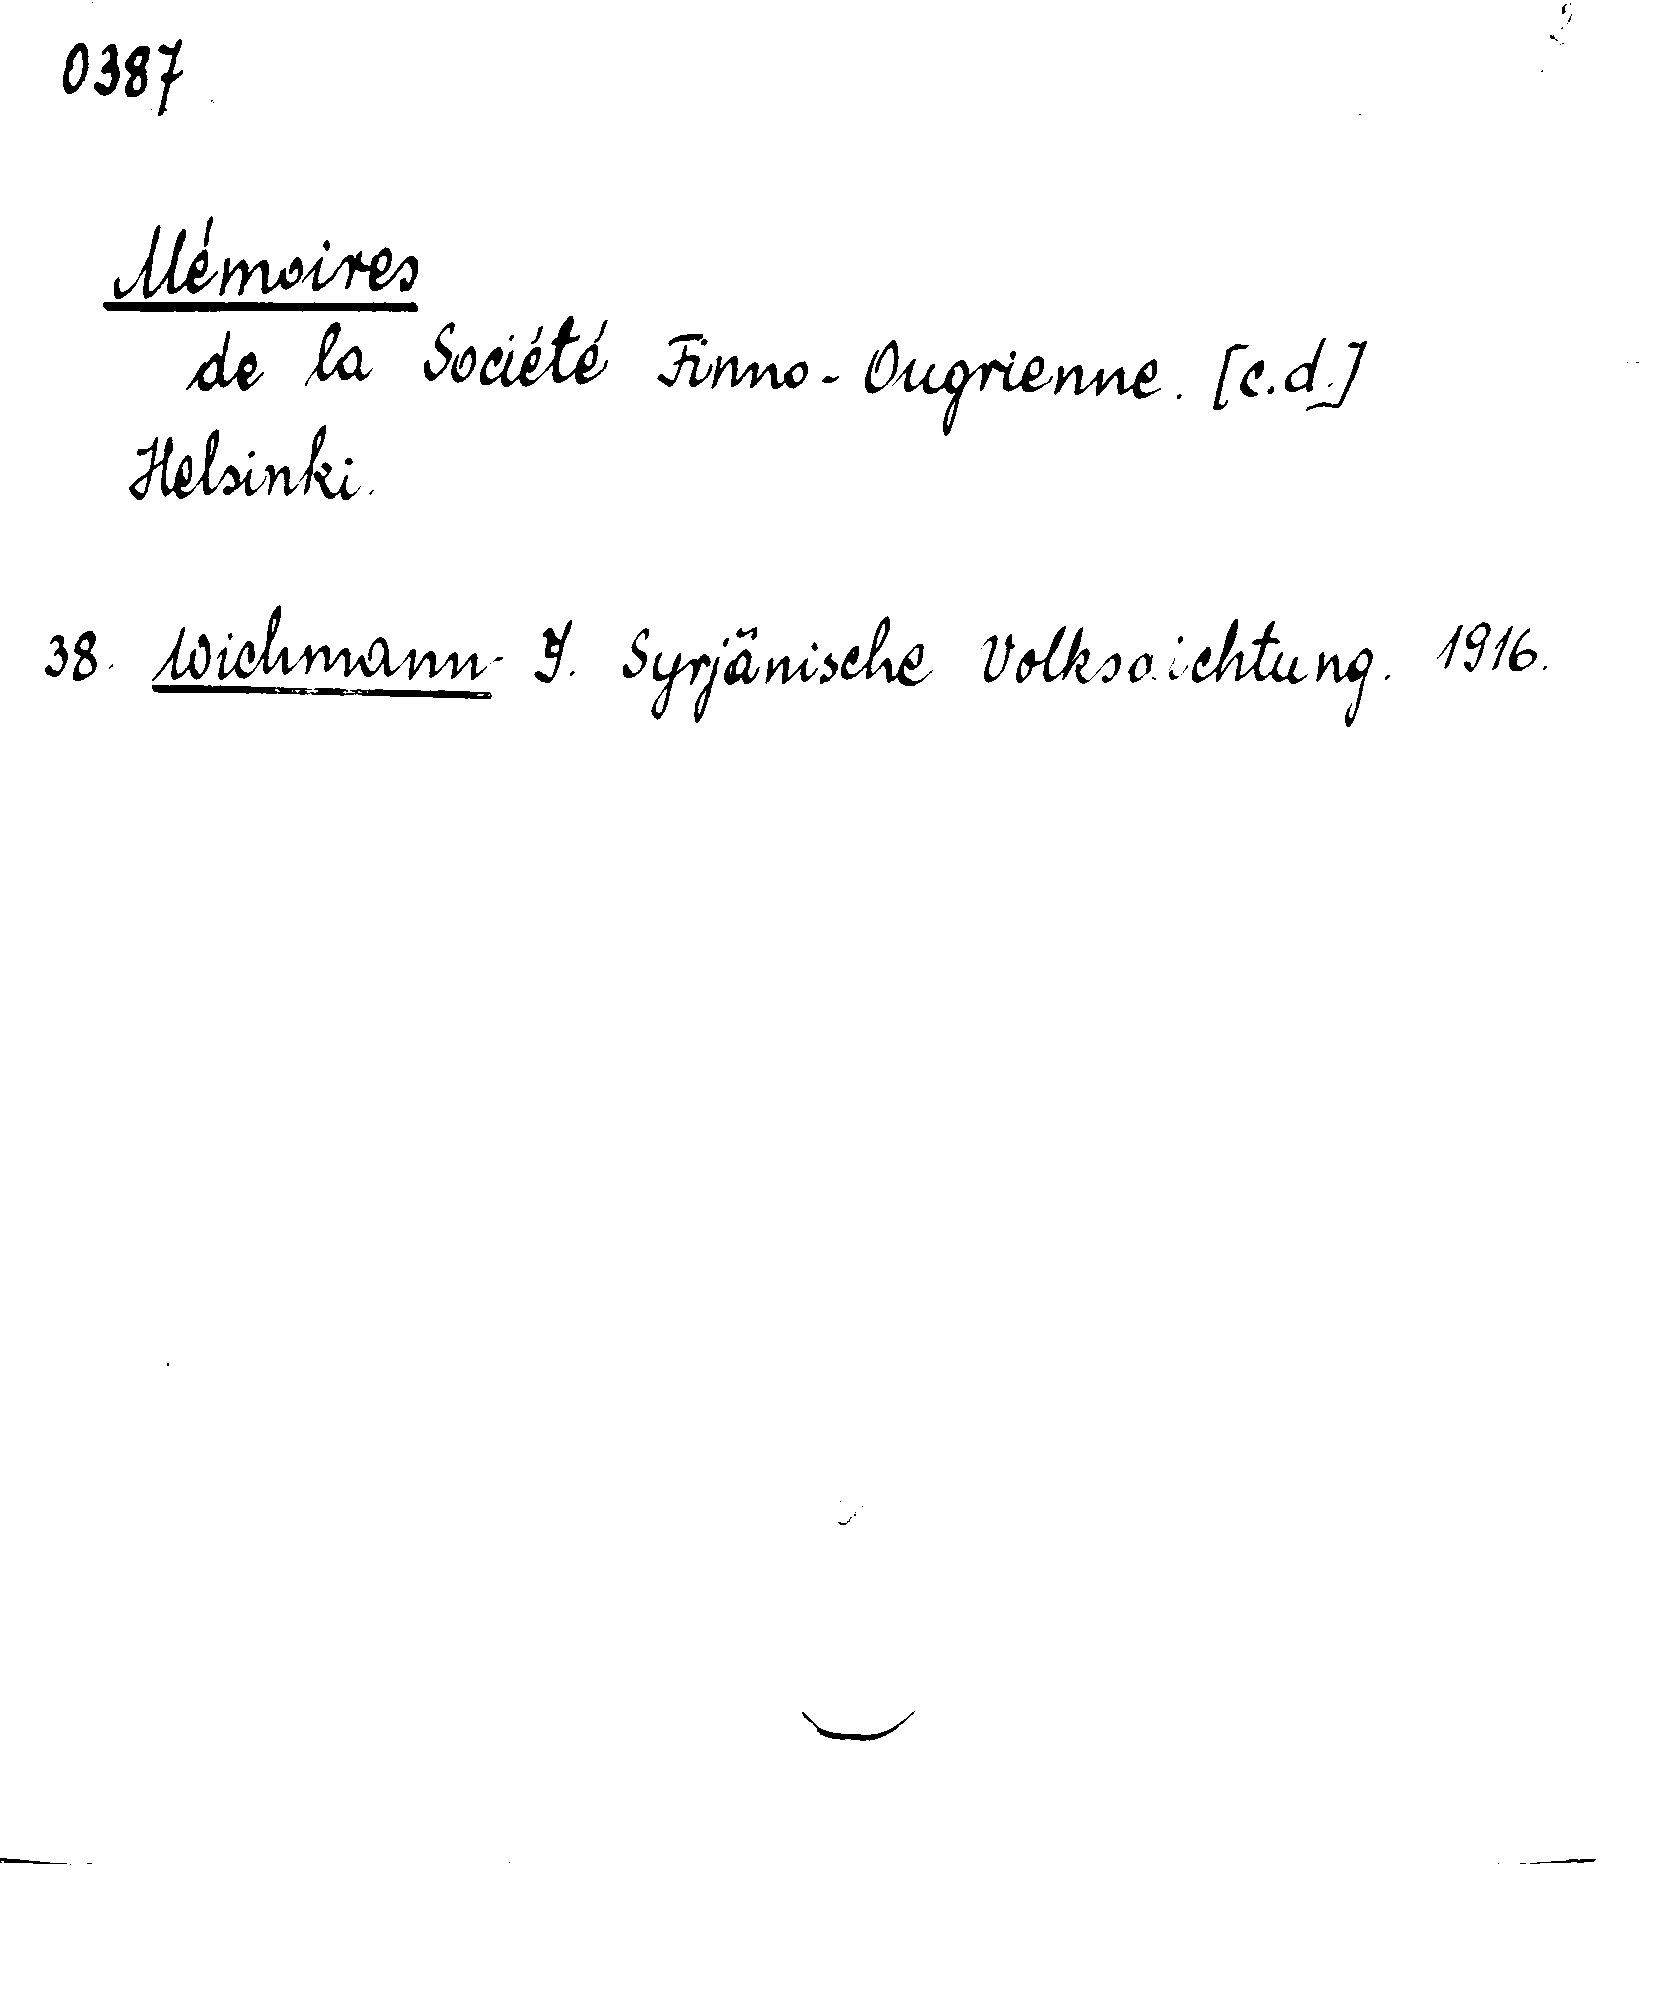 0387
Mémoires
de la Société Finno-Ougrienne. [c.d.]
Helsinki.
38. Wichmann Y. Syrjänische Volksdichtung. 1916.